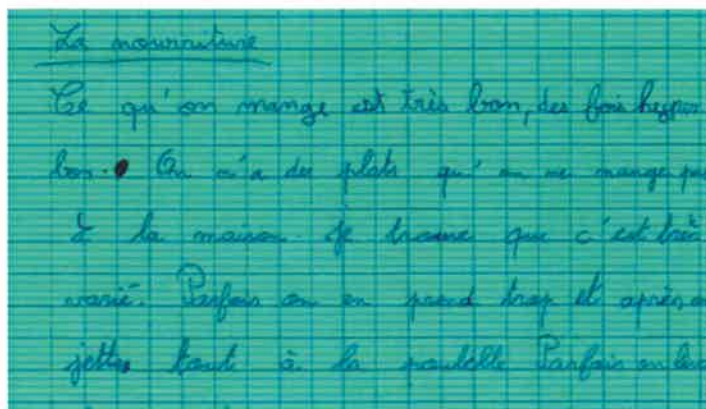 La nourriture
Ce qu'on mange est très bon, des fois hyper
bon. On n'a des plats qu'on ne mange pas
à la maison. Je trouve que c'est très
varié. Parfois on en prend trop et après on
jette tout à la poubelle Parfois on